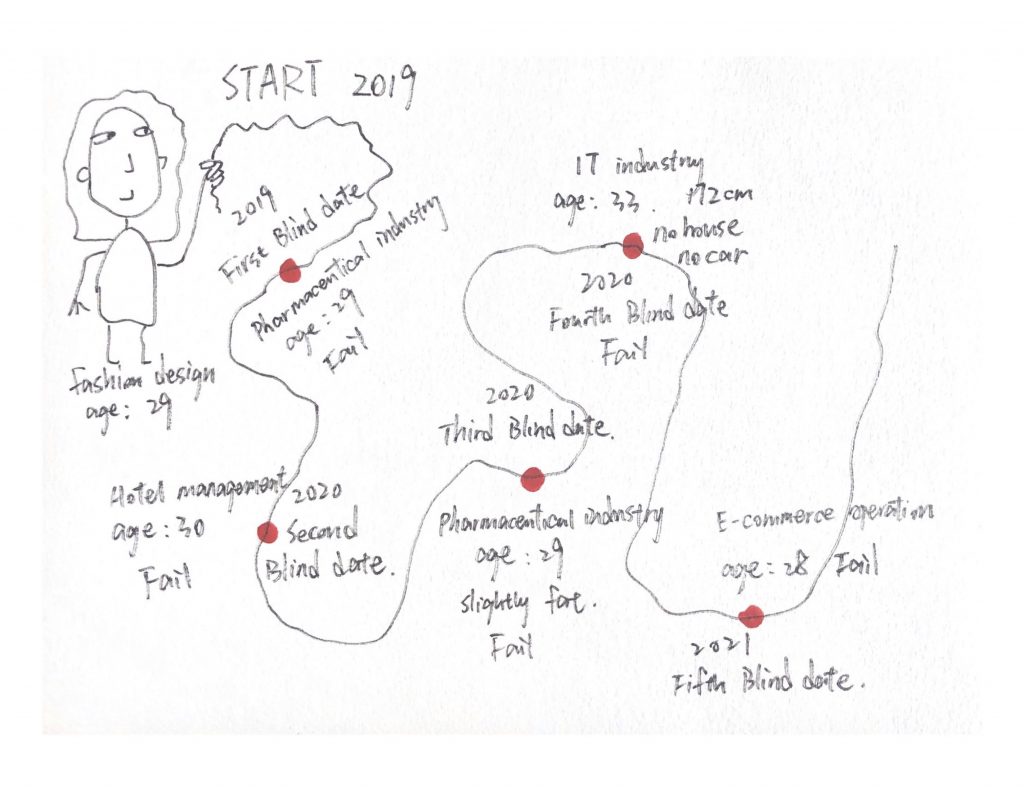 START 2019
fashion design
age: 29
2019
First Blind date
Pharmaceutical industry
age: 29
Fail
Hotel management
age: 30
Fail
2020
Second
Blind date.
2020
Third Blind date.
Pharmaceutical industry
age: 29
slightly fat.
Fail
IT industry
age: 33. 172cm
no house
no car
2020
Fourth Blind date
Fail
E-commerce operation
age: 28 Fail
2021
Fifth Blind date.